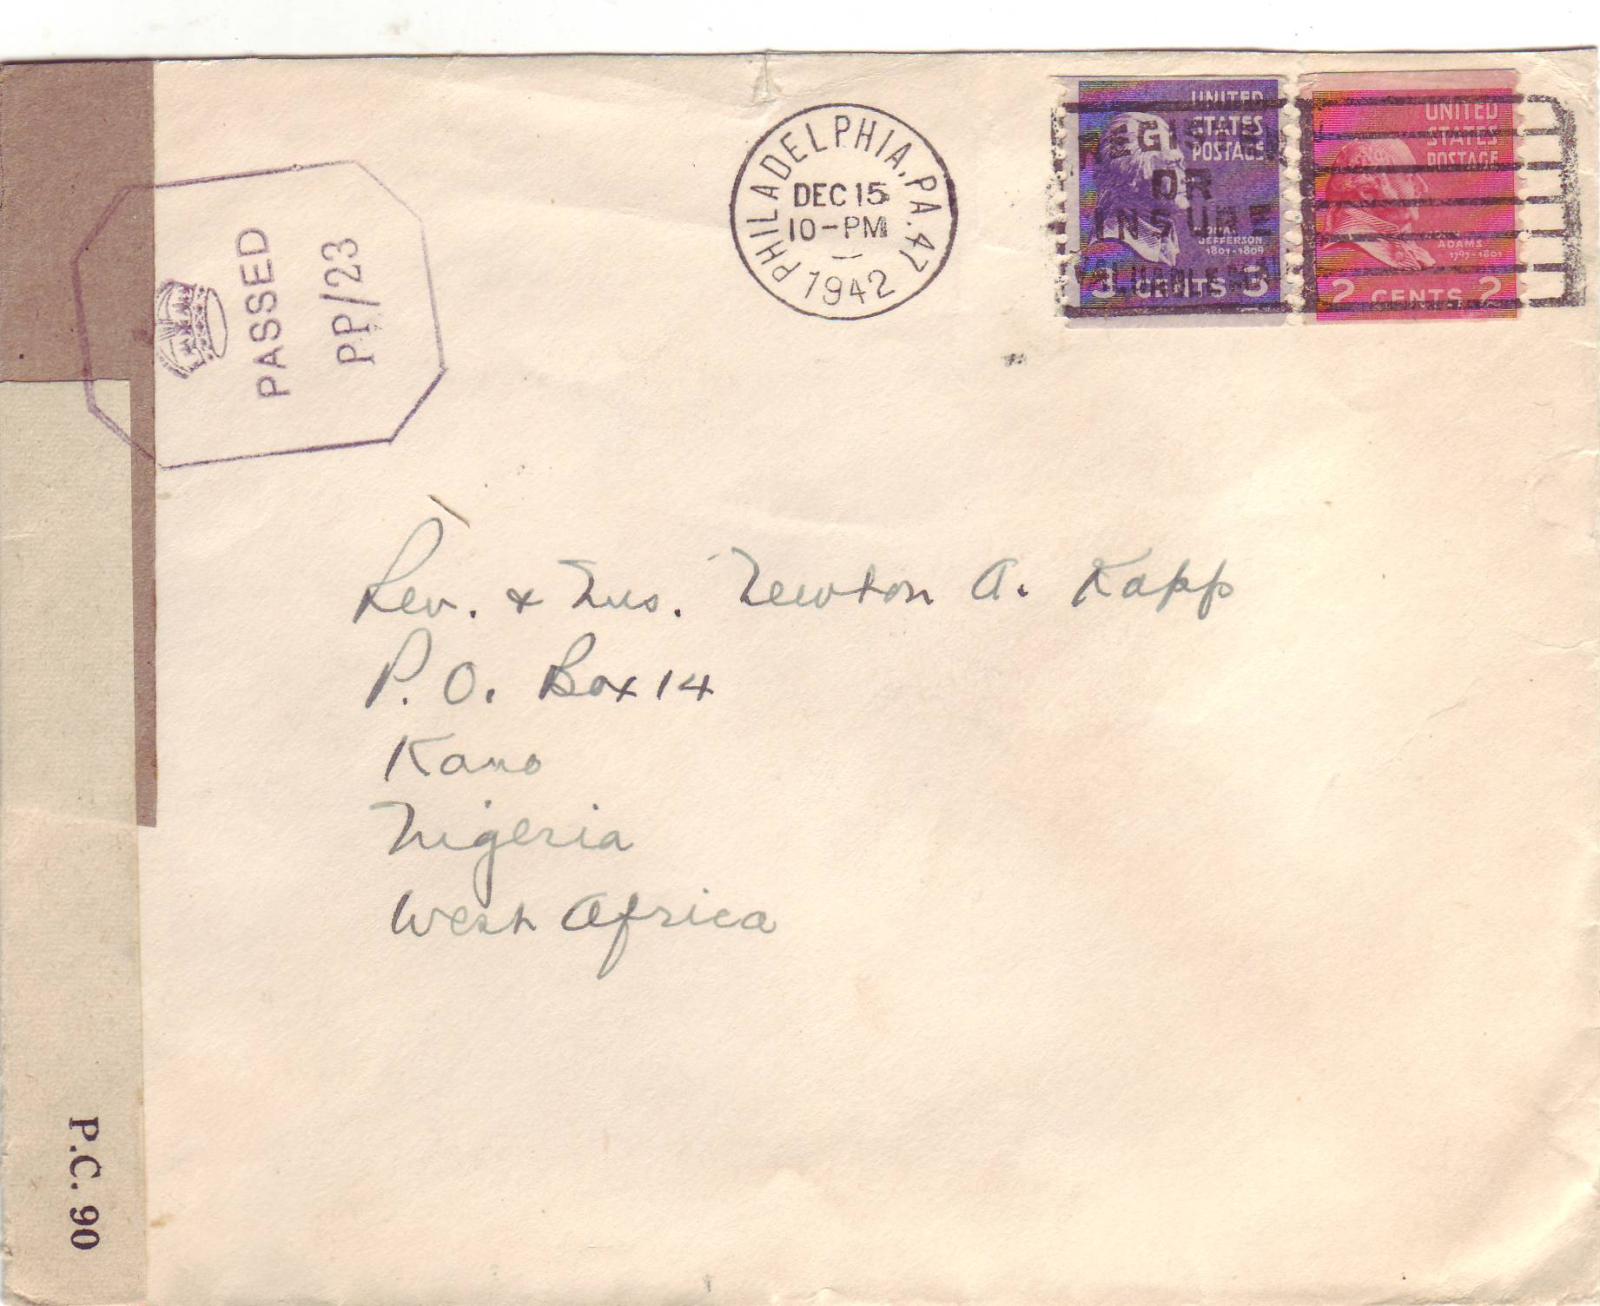 PASSED
PP/23
PHILADELPHIA, PA. 47
DEC 15
10-PM
1942
UNITED
STATES
POSTAGE
JEFFERSON
1801-1809
3 CENTS 3
UNITED
STATES
POSTAGE
ADAMS
1797-1801
2 CENTS 2
REGISTER
OR
INSURE
VALUABLE MAIL
Rev. & Mrs. Newton A. Kapp
P. O. Box 14
Kano
Nigeria
West Africa
P.C. 90